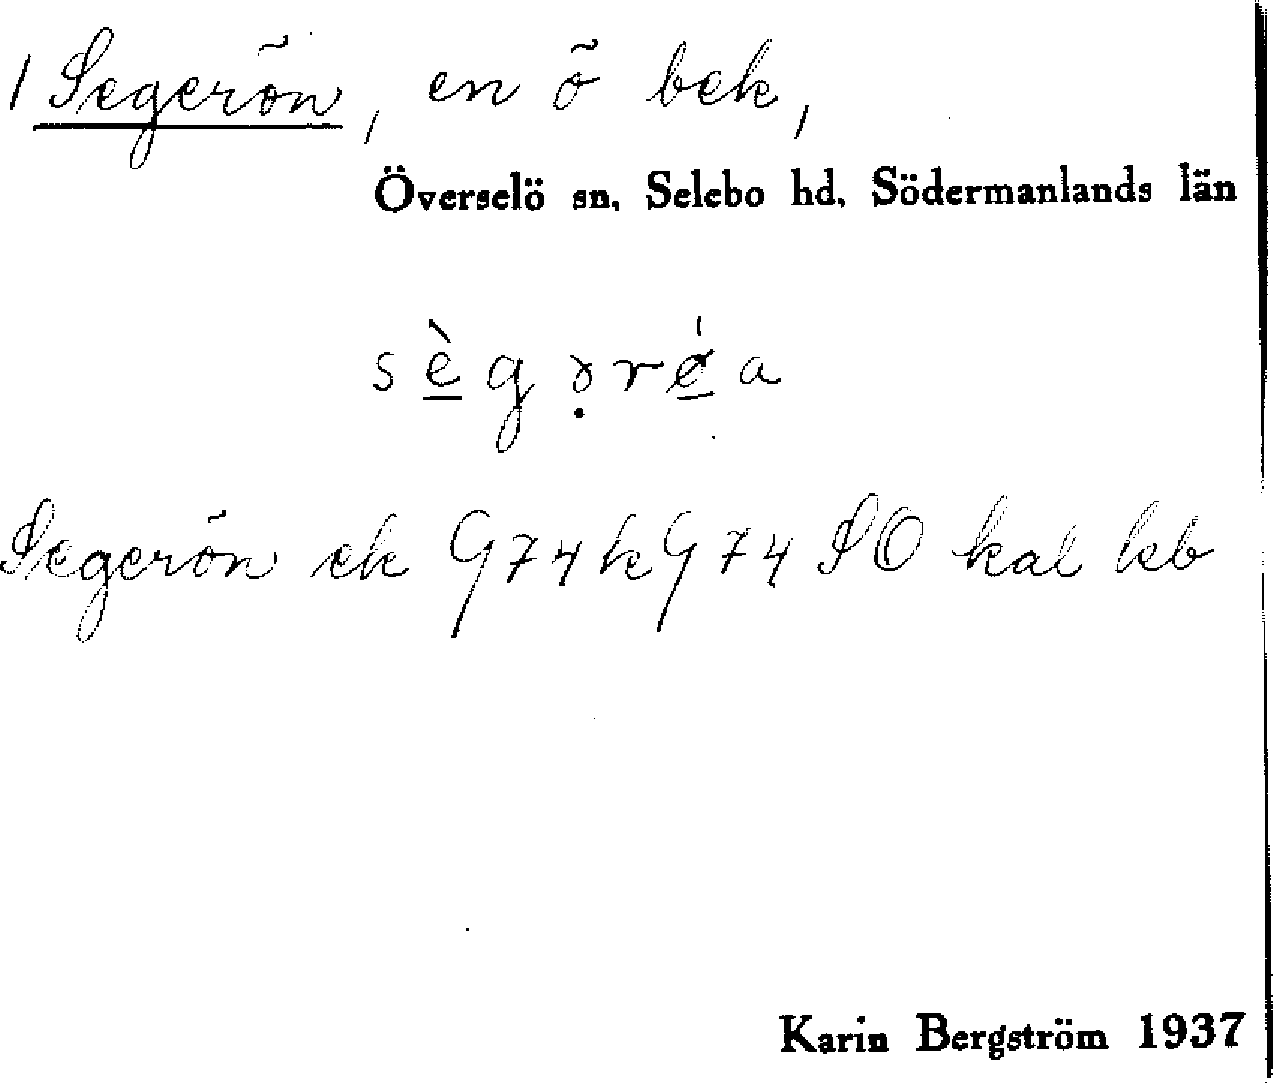 1 Segerön, en ö bek,
Överselö sn. Selebo hd. Södermanlands län
sègərǿa
Segerön ek G74 kG74 SO kal kb
Karin Bergström 1937